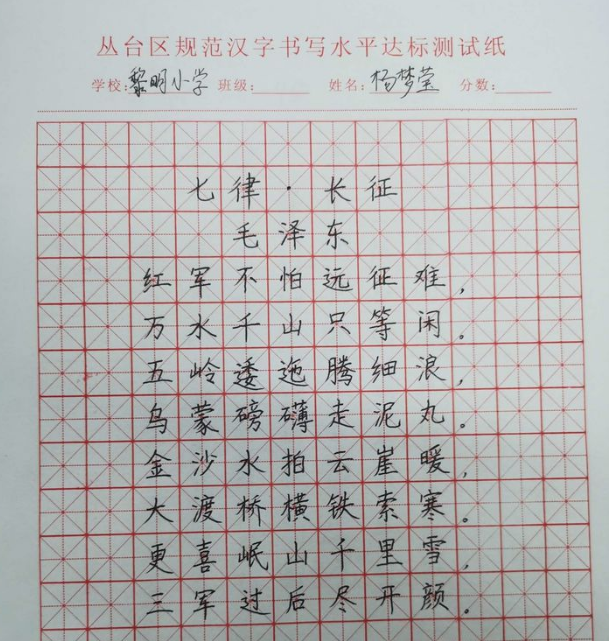 丛台区规范汉字书写水平达标测试纸
学校:黎明小学 班级: 姓名:杨梦莹 分数:
七律·长征
毛泽东
红军不怕远征难,
万水千山只等闲。
五岭逶迤腾细浪,
乌蒙磅礴走泥丸。
金沙水拍云崖暖,
大渡桥横铁索寒。
更喜岷山千里雪,
三军过后尽开颜。